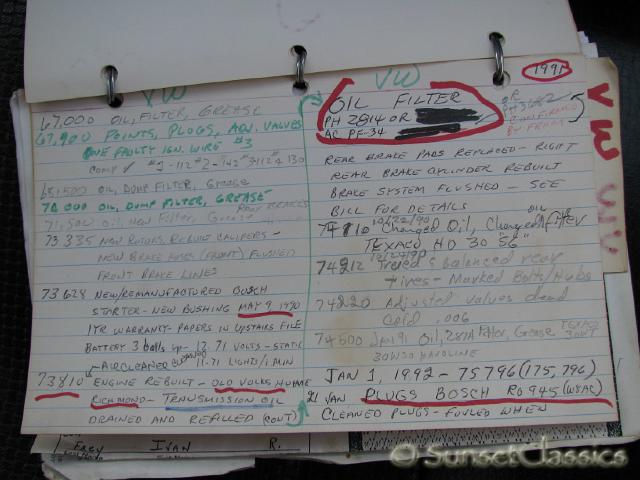 VW
67,000 OIL, FILTER, GREASE
67,900 POINTS, PLUGS, ADJ. VALVES
ONE FAULTY IGN. WIRE #3
COMP #1-112 #2-142 #3 112 #4 130
OIL, DUMP FILTER, GREASE
70 000 OIL, DUMP FILTER, GREASE
REAR BRAKES
71,500 OIL, NEW FILTER, GREASE
73 335 NEW ROTORS, REBUILT CALIPERS -
NEW BRAKE HOSES (FRONT) FLUSHED
FRONT BRAKE LINES
73628 NEW/REMANUFACTURED BOSCH
STARTER - NEW BUSHING MAY 9, 1990
1 YR WARRANTY-PAPERS IN UPSTAIRS FILE
BATTERY 3 balls up - 12.71 VOLTS - STATIC
AIR CLEANER 11.71 - LIGHTS / 1 MIN
73810 ENGINE REBUILT - OLD VOLKS HOME
RICHMOND - TRANSMISSION OIL
DRAINED AND REFILLED (CONT)
VW
1991
OIL FILTER
PH 2814 OR
AC PF-34
OR
CONFIRMED
BY FRAM
REAR BRAKE PADS REPLACED - RIGHT
REAR BRAKE CYLINDER REBUILT
BRAKE SYSTEM FLUSHED - SEE
BILL FOR DETAILS
10/22/90 OIL
74110 Changed Oil, Changed Filter
TEXACO HD 30
74212 Trued & balanced rear
tires - Marked Bolts/Hubs
74220 Adjusted valves dead
cold .006
74600 Jan 91 Oil, 2814 Filter, Grease TEXACO
JAN 1, 1992 - 75796 (175,796)
21 JAN PLUGS BOSCH RO 945 (W8AC)
CLEANED PLUGS - FOULED WHEN
VW
IVAN R.
© SunsetClassics